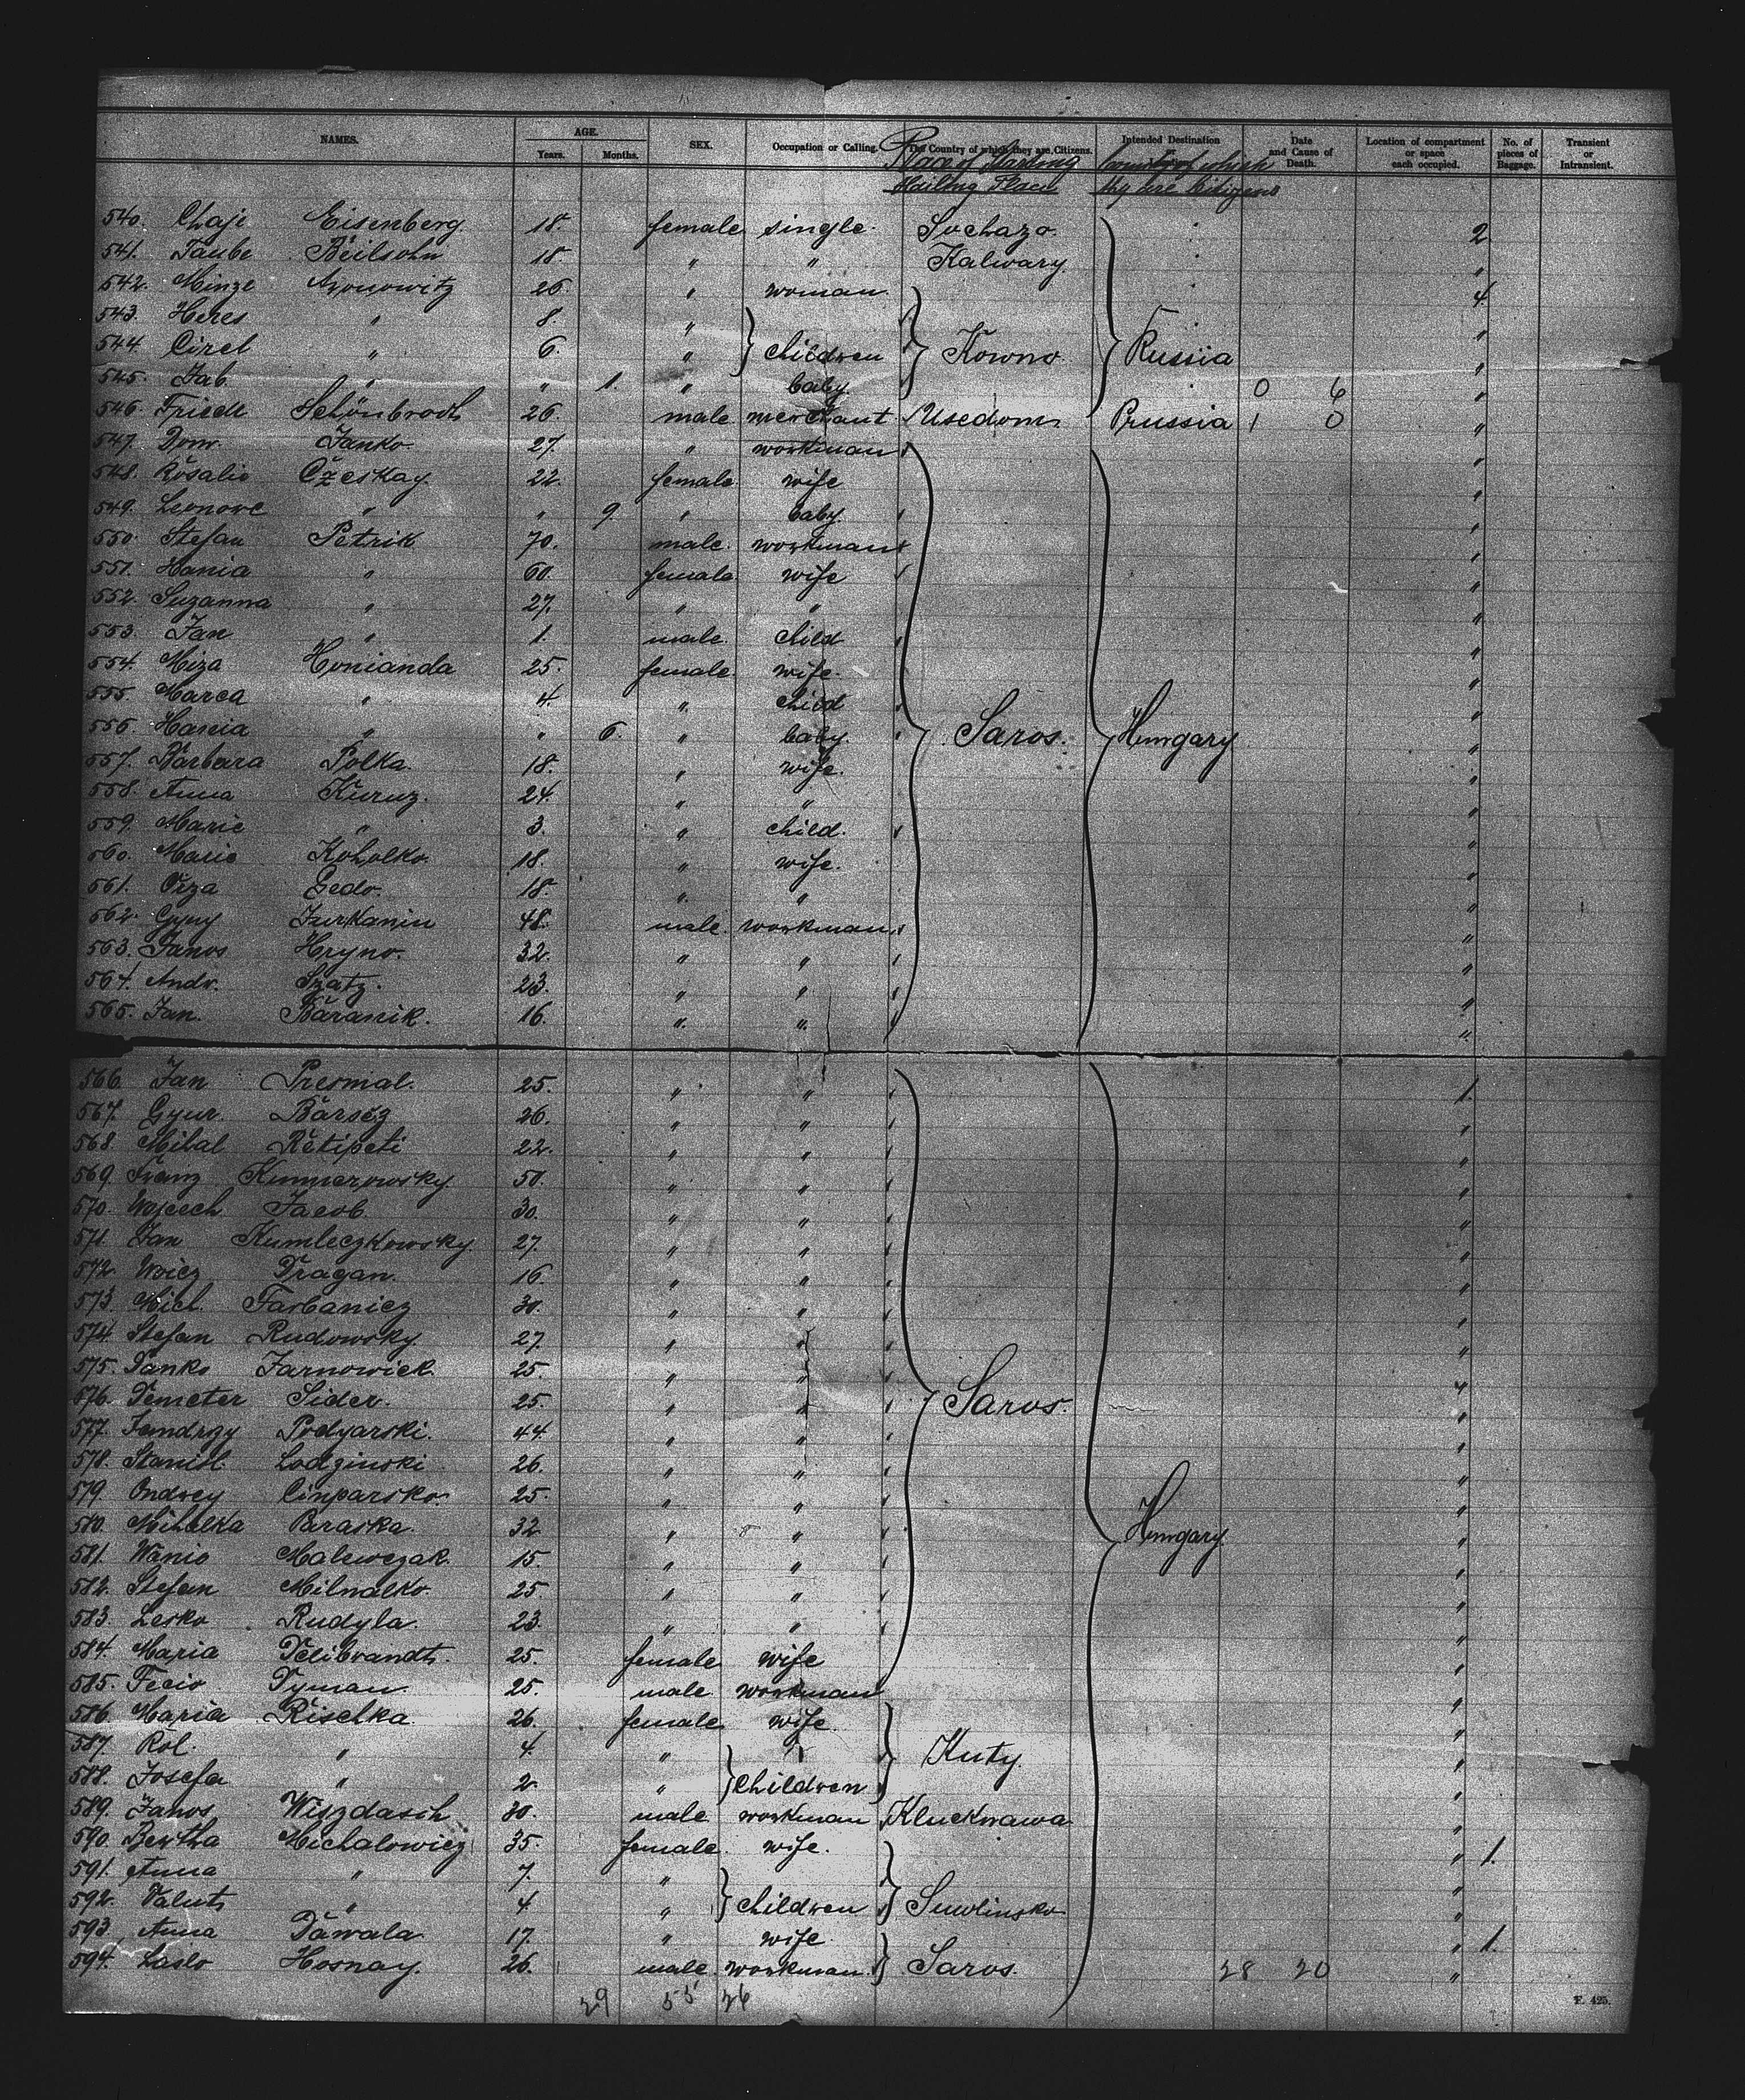 NAMES. AGE. SEX. Occupation or Calling. The Country of which they are Citizens. Intended Destination or Date and Cause of Death. Location of compartment or space each occupied. No. of pieces of Baggage. Transient or Intransient.
Years. Months.
Place of Country of which
Mailing Place they are Citizens
540. Chaje Eisenberg 18. female single Suchazo 2
541. Taube Beilsohn 18. " " Kalwary "
542. Minze Aronowitz 26 " woman 4
543. Heres " 8. " "
544. Cirel " 6. " children Kowno Russia "
545. Jab. " " 1. " baby 0 6 "
546. Friede Schönbrodt 26. male merchant Usedom Prussia 1 0 "
547. Dom. Janko. 27. " workman "
548. Rosalie Czeskay 22. female wife "
549. Leonore " " 9. " baby "
550. Stefan Petrik 70. male workman "
551. Hania " 60. female wife "
552. Suzanna " 27. " " "
553. Jan " 1. male child "
554. Miza Honianda 25. female wife "
555. Marca " 4. " child "
556. Hania " " 6. " baby Saros. Hungary "
557. Barbara Polka. 18. " wife. "
558. Anna Kuruz. 24. " " "
559. Marie " 3. " child. "
560. Marie Koholko. 18. " wife. "
561. Gedo. 18. " " "
562. Gyny Jurkanin 48. male workman "
563. Janos Hryno. 32. " " "
564. Andr. Szatz. 23. " " "
565. Jan. Baranik. 16. " " "
566. Jan Presmal. 25. " " 1.
567. Gyur. Barsez 26. " " "
568. Mihal Retipeti 22. " " "
569. Franz Kummerowsky. 50. " " "
570. Wojcech Jacob. 30. " " "
571. Jan Kumleczkowsky. 27. " " "
572. Woicz Dragan. 16. " " "
573. Mich. Farbanicz 30. " " "
574. Stefan Rudowsky. 27. " " "
575. Janko Jarnowick. 25. " " "
576. Demeter Sider. 25. " " Saros. "
577. Jendrzy Podyarski. 44. " " "
578. Stanisl. Lodzinski 26. " " "
579. Ondrey Cinparsko. 25. " " "
580. Mihalka Paraska. 32 " " Hungary. "
581. Wanio Malewczak. 15. " " "
582. Stefan Milnalko. 25. " " "
583. Lesko Rudyla. 23. " " "
584. Maria Delibrandt. 25. female wife "
585. Fecio Dyman. 25. male workman "
586. Maria Rischka. 26. female wife. "
587. Rol. " 4. " Kuty. "
588. Josefa " 2. " children "
589. Janos Wiszdasch 30. male workman Kluckwawa "
590. Bertha Michalowicz 35. female wife. " 1.
591. Anna " 7. " "
592. Valuts " 4. " children Suwlinsko "
593. Anna Dawala. 17. " wife. " 1.
594. Laslo Hosnay. 26. male workman Saros. 28 20 "
29 55 26
F. 425.